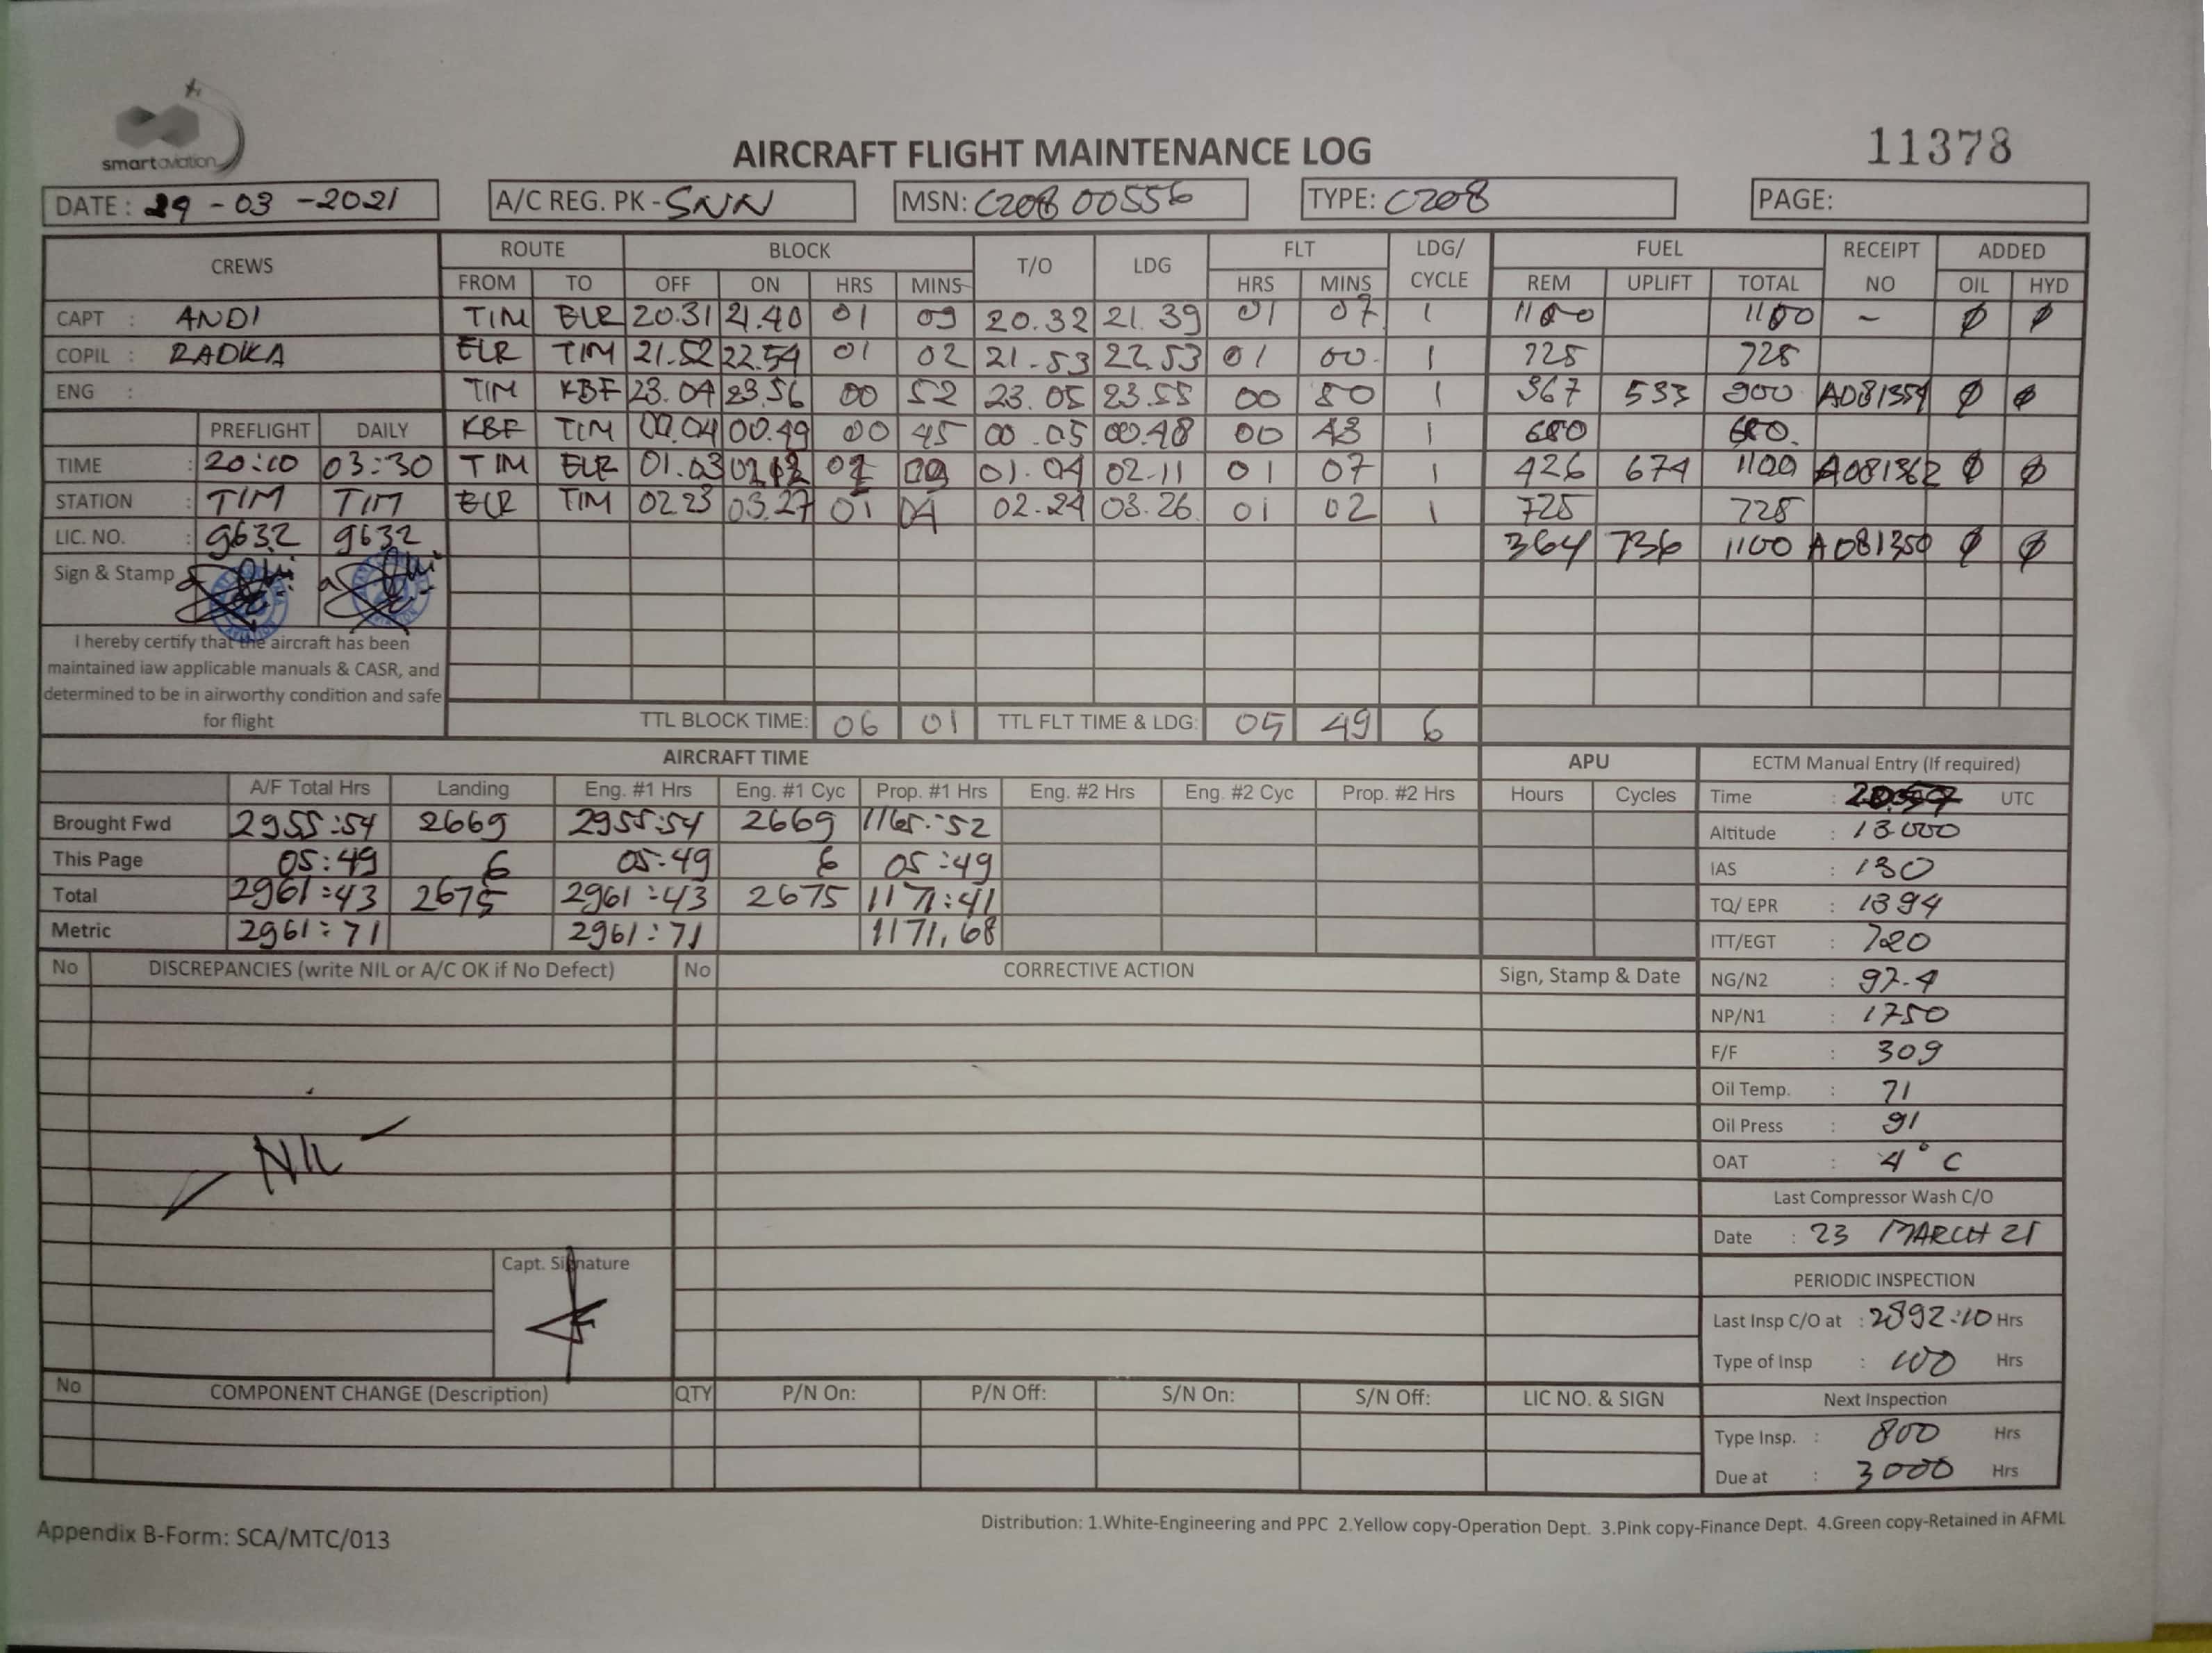 smartaviation
AIRCRAFT FLIGHT MAINTENANCE LOG
11378
DATE : 29 - 03 - 2021 A/C REG. PK - SNN MSN: C208 00556 TYPE: C208 PAGE:
CREWS ROUTE BLOCK T/O LDG FLT LDG/ CYCLE FUEL RECEIPT NO ADDED
FROM TO OFF ON HRS MINS HRS MINS REM UPLIFT TOTAL OIL HYD
CAPT : ANDI TIM ELR 20.31 21.40 01 09 20.32 21.39 01 07 1 1100 1100 - Ø Ø
COPIL : RADKA ELR TIM 21.52 22.54 01 02 21.53 22.53 01 00 1 725 725
ENG : TIM KBF 23.04 23.56 00 52 23.05 23.55 00 50 1 367 533 900 Ø Ø
PREFLIGHT DAILY KBF TIM 00.04 00.49 00 45 00.05 00.48 00 43 1 680 680.
TIME : 20:10 03:30 TIM ELR 01.03 02.12 01 09 01.04 02.11 01 07 1 426 674 1100 A081362 Ø Ø
STATION : TIM TIM ELR TIM 02.23 03.27 01 04 02.24 03.26 01 02 1 725 725
LIC. NO. : 9632 9632 364 736 1100 A081350 Ø Ø
Sign & Stamp
I hereby certify that the aircraft has been
maintained iaw applicable manuals & CASR, and
determined to be in airworthy condition and safe
for flight
TTL BLOCK TIME: 06 01 TTL FLT TIME & LDG: 05 49 6
AIRCRAFT TIME APU ECTM Manual Entry (If required)
A/F Total Hrs Landing Eng. #1 Hrs Eng. #1 Cyc Prop. #1 Hrs Eng. #2 Hrs Eng. #2 Cyc Prop. #2 Hrs Hours Cycles Time : UTC
Brought Fwd 2955:54 2669 2955:54 2669 1165:52 Altitude : 13000
This Page 05:49 6 05:49 6 05:49 IAS : 130
Total 2961:43 2675 2961:43 2675 1171:41 TQ/ EPR : 1394
Metric 2961:71 2961:71 1171,68 ITT/EGT : 720
No DISCREPANCIES (write NIL or A/C OK if No Defect) No CORRECTIVE ACTION Sign, Stamp & Date NG/N2 : 97.4
NP/N1 : 1750
F/F : 309
Oil Temp. : 71
Oil Press : 91
NIL
OAT : 4°C
Last Compressor Wash C/O
Date : 23 MARCH 21
Capt. Signature
PERIODIC INSPECTION
Last Insp C/O at : 2892:10 Hrs
Type of Insp : 100 Hrs
No COMPONENT CHANGE (Description) QTY P/N On: P/N Off: S/N On: S/N Off: LIC NO. & SIGN Next Inspection
Type Insp. : 800 Hrs
Due at : 3000 Hrs
Appendix B-Form: SCA/MTC/013
Distribution: 1.White-Engineering and PPC 2.Yellow copy-Operation Dept. 3.Pink copy-Finance Dept. 4.Green copy-Retained in AFML